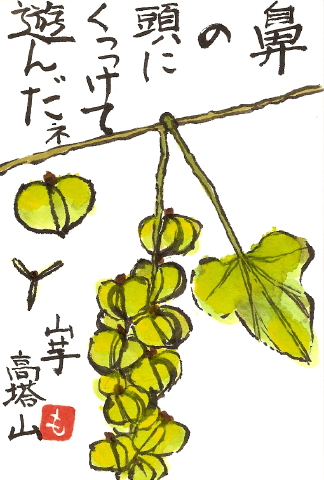 鼻
の
頭に
くっつけて
遊んだネ
山芋
高塔山
も